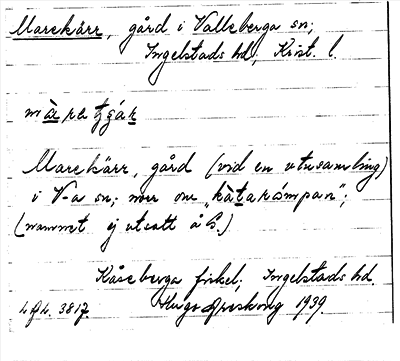 Marekärr, gård i Valleberga sn;
Ingelstads hd, Krist. l.
Marekärr, gård (vid en utusamling)
i V-a sn; norr om "kàtarómpan";
(namnet ej utsatt å G.)
Kåseberga fiskel; Ingelstads hd.
Hugo Areskoug 1939.